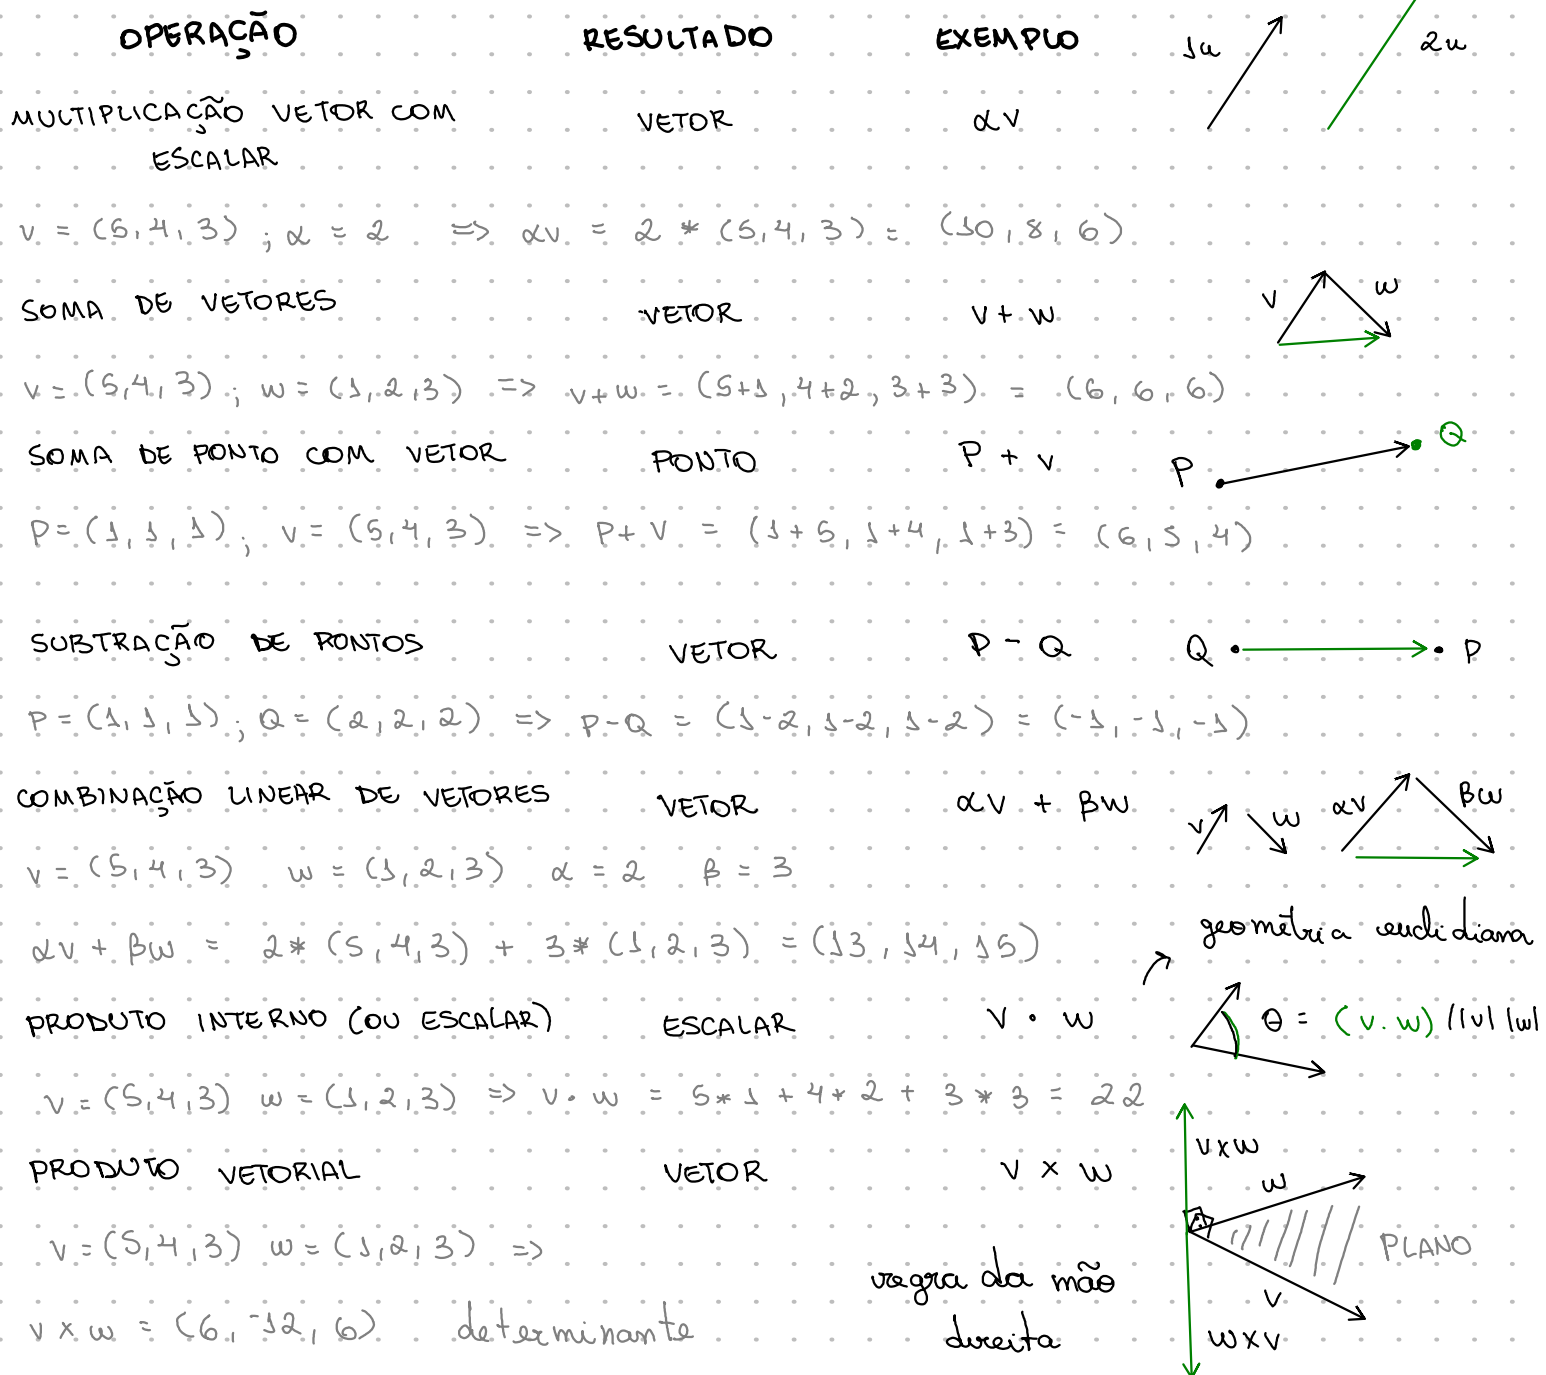 OPERAÇÃO RESULTADO EXEMPLO 1u 2u
MULTIPLICAÇÃO VETOR COM VETOR αv
ESCALAR
v = (5,4,3) ; α = 2 => αv = 2 * (5,4,3) = (10,8,6)
SOMA DE VETORES VETOR v + w v w
v = (5,4,3) ; w = (1,2,3) => v+w = (5+1, 4+2, 3+3) = (6,6,6)
SOMA DE PONTO COM VETOR PONTO P + v P Q
P = (1,1,1) ; v = (5,4,3) => P+v = (1+5, 1+4, 1+3) = (6,5,4)
SUBTRAÇÃO DE PONTOS VETOR P - Q Q P
P = (1,1,1) ; Q = (2,2,2) => P-Q = (1-2, 1-2, 1-2) = (-1,-1,-1)
COMBINAÇÃO LINEAR DE VETORES VETOR αv + βw v w αv βw
v = (5,4,3) w = (1,2,3) α = 2 β = 3
geometria euclidiana
αv + βw = 2* (5,4,3) + 3* (1,2,3) = (13,14,15)
PRODUTO INTERNO (OU ESCALAR) ESCALAR v • w θ = (v.w) / |v| |w|
v = (5,4,3) w = (1,2,3) => v.w = 5*1 + 4*2 + 3*3 = 22
PRODUTO VETORIAL VETOR v × w v×w w
v = (5,4,3) w = (1,2,3) => PLANO
regra da mão v
v × w = (6,-12,6) determinante direita w×v